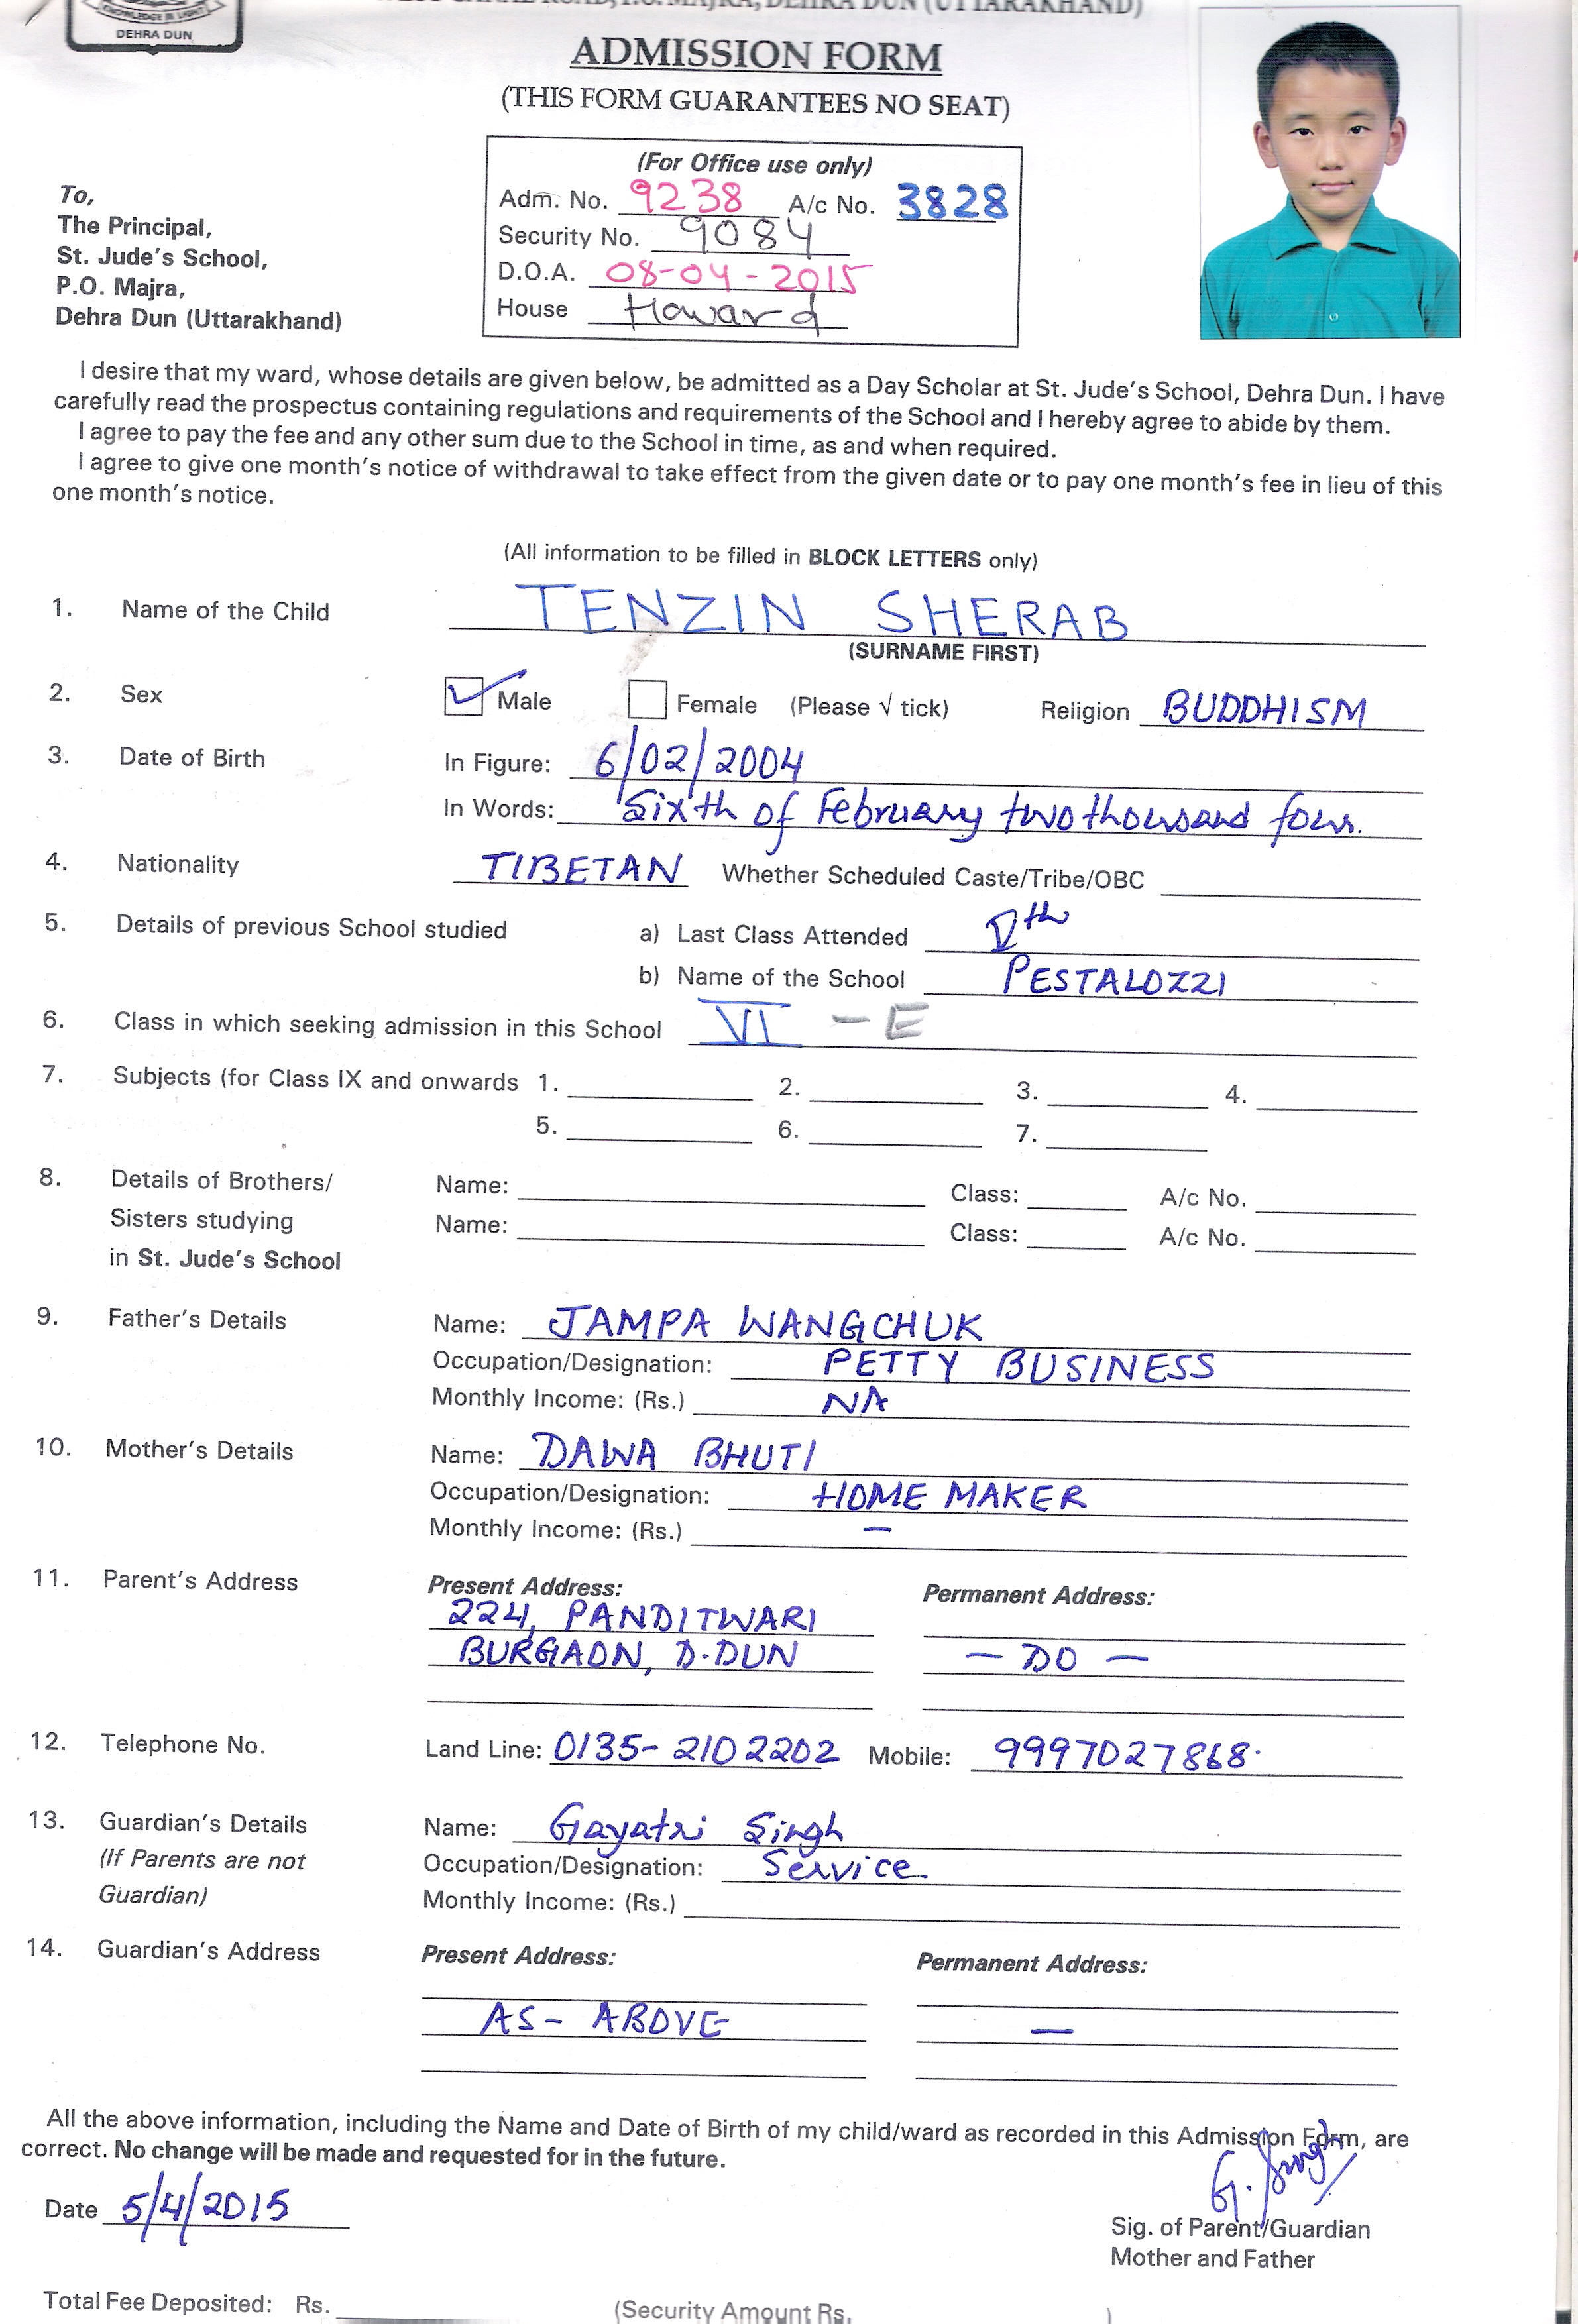 KNOWLEDGE IS LIGHT
DEHRA DUN
WEST CANAL ROAD, P.O. MAJRA, DEHRA DUN (UTTARAKHAND)
ADMISSION FORM
(THIS FORM GUARANTEES NO SEAT)
(For Office use only)
Adm. No. 9238 A/c No. 3828
Security No. 9084
D.O.A. 08-04-2015
House Howard
To,
The Principal,
St. Jude's School,
P.O. Majra,
Dehra Dun (Uttarakhand)
I desire that my ward, whose details are given below, be admitted as a Day Scholar at St. Jude's School, Dehra Dun. I have
carefully read the prospectus containing regulations and requirements of the School and I hereby agree to abide by them.
I agree to pay the fee and any other sum due to the School in time, as and when required.
I agree to give one month's notice of withdrawal to take effect from the given date or to pay one month's fee in lieu of this
one month's notice.
(All information to be filled in BLOCK LETTERS only)
1. Name of the Child TENZIN SHERAB
(SURNAME FIRST)
2. Sex Male Female (Please √ tick) Religion BUDDHISM
3. Date of Birth In Figure: 6/02/2004
In Words: Sixth of February two thousand four.
4. Nationality TIBETAN Whether Scheduled Caste/Tribe/OBC
5. Details of previous School studied a) Last Class Attended Vth
b) Name of the School PESTALOZZI
6. Class in which seeking admission in this School VI - E
7. Subjects (for Class IX and onwards 1. 2. 3. 4.
5. 6. 7.
8. Details of Brothers/ Name: Class: A/c No.
Sisters studying Name: Class: A/c No.
in St. Jude's School
9. Father's Details Name: JAMPA WANGCHUK
Occupation/Designation: PETTY BUSINESS
Monthly Income: (Rs.) NA
10. Mother's Details Name: DAWA BHUTI
Occupation/Designation: HOME MAKER
Monthly Income: (Rs.) -
11. Parent's Address Present Address: Permanent Address:
224, PANDITWARI
BURGAON, D.DUN - DO -
12. Telephone No. Land Line: 0135-2102202 Mobile: 9997027868.
13. Guardian's Details Name: Gayatri Singh
(If Parents are not Occupation/Designation: Service.
Guardian) Monthly Income: (Rs.)
14. Guardian's Address Present Address: Permanent Address:
AS - ABOVE -
All the above information, including the Name and Date of Birth of my child/ward as recorded in this Admission Form, are
correct. No change will be made and requested for in the future.
G. Singh
Date 5/4/2015
Sig. of Parent/Guardian
Mother and Father
Total Fee Deposited: Rs. (Security Amount Rs. )